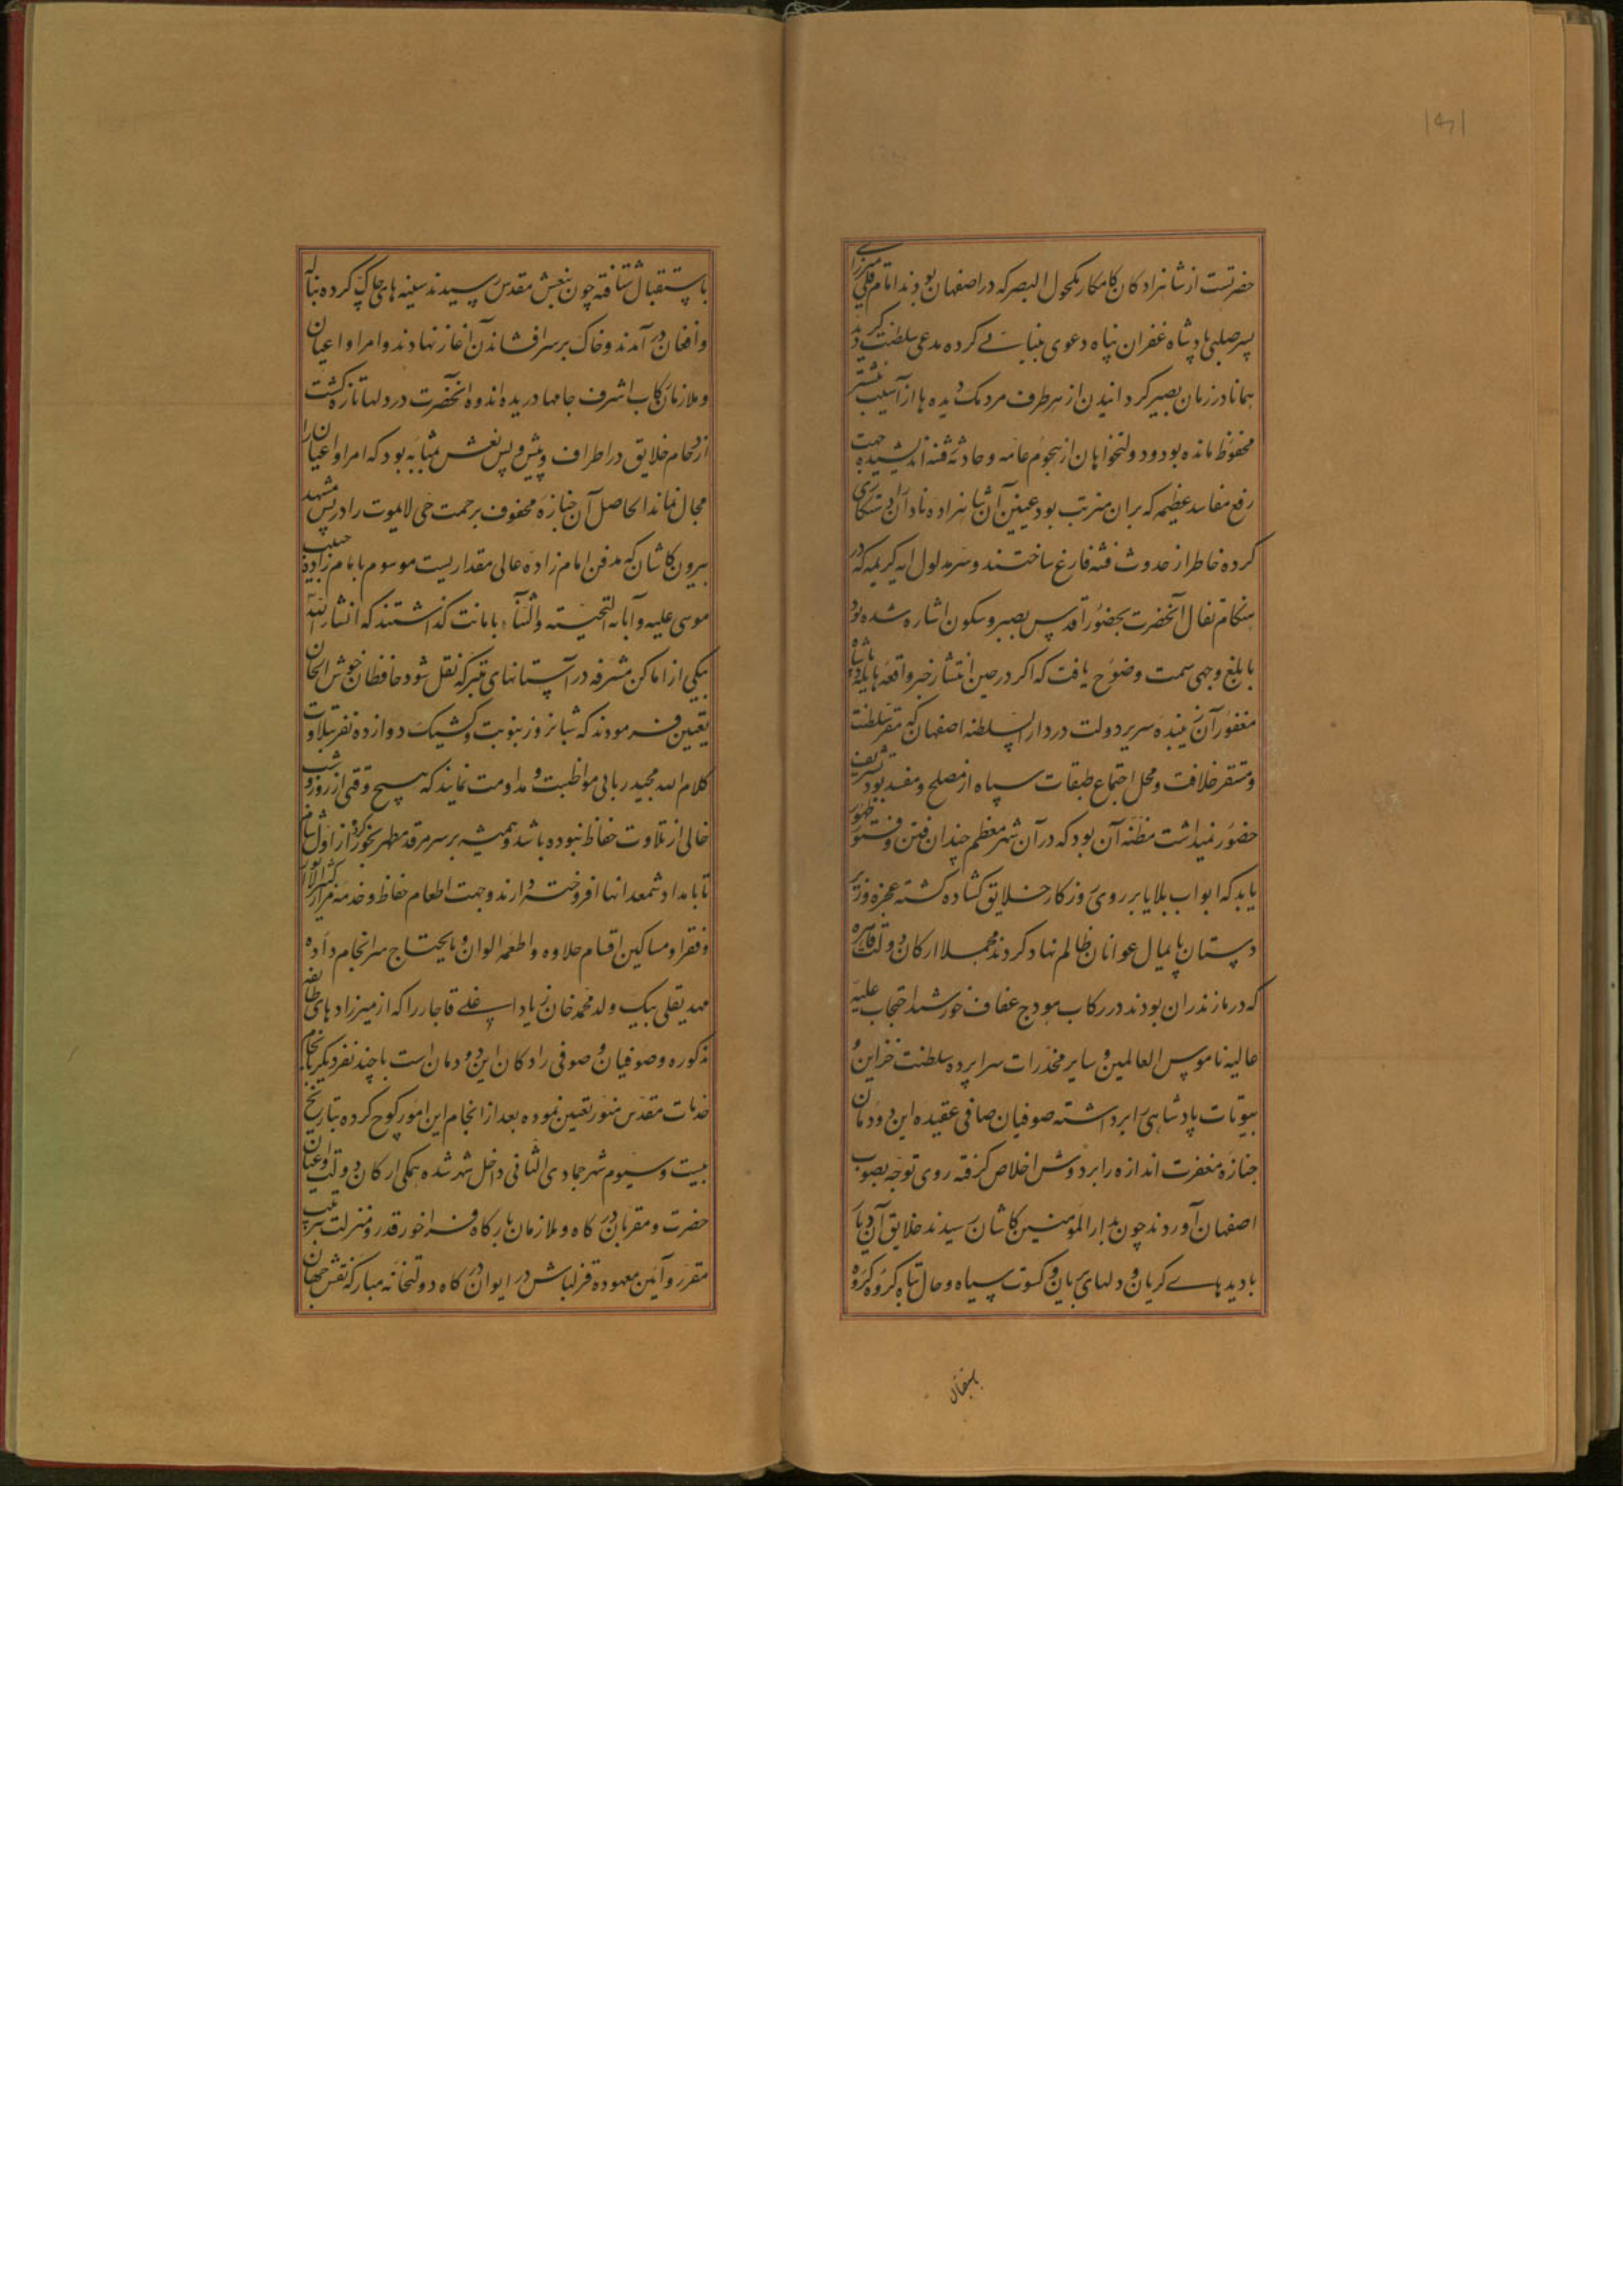 ۱۶۱
حضرتست از شاهزادکان کامکار مکحول البصر که در اصفهان بودند امام قلی میرزای
پسر صلبی پادشاه غفران پناه دعوی بینایی کرده مدعی سلطنت کردید
همانا در زمان بصیر کردانیدن از هر طرف مردمک دیده ها از آسیب نشتر
محفوظ مانده بود و دولتخواهان از هجوم عامه و حادثه فتنه اندیشیده جهت
رفع مفاسد عظیمه که بر ان مترتب بود عینین آن شاهزاده نادان
کرده خاطر از حدوث فتنه فارغ ساختند و سر مدلول ایه کریمه که در
هنکام تفال آنحضرت بحضور اقدس بصبر و سکون اشاره شده بود
بابلغ وجهی سمت وضوح یافت که اکر در حین انتشار خبر واقعه هایله پادشاه
مغفور آن زیبنده سریر دولت در دار السلطنه اصفهان که مقر سلطنت
و مستقر خلافت و محل اجتماع طبقات سپاه از مصلح و مفسد بود تشریف
حضور نمیداشت مظنه آن بود که در آن شهر معظم چندان فتن و فتور ظهور
یابد که ابواب بلایا بر روی روزکار خلایق کشاده کشته عجزه و زیر
دستان پایمال عوانان ظالم نهاد کردند مجملا ارکان دولت قاهره
که در مازندران بودند در رکاب هودج عفاف خورشید احتجاب علیه
عالیه ناموس العالمین و سایر مخدرات سراپرده سلطنت خزاین و
بیوتات پادشاهی را برداشته صوفیان صافی عقیده این دودمان
جنازه مغفرت اندازه را بر دوش اخلاص کرفته روی توجه بصوب
اصفهان آوردند چون بدار المومنین کاشان رسیدند خلایق آن دیار
با دیدهای کریان و دلهای بریان و کسوت سیاه و حال تباه کروه کروه
باستقبال
باستقبال شتافته چون بنعش مقدس رسیدند سینه های چاک کرده بناله
و افغان در آمدند و خاک بر سر افشاندن آغاز نهادند و امرا و اعیان
و ملازمان رکاب اشرف جامها دریده اندوه آنحضرت در دلها تازه کشت
ازدحام خلایق در اطراف و پیش و پس نعش بمثابه بود که امرا و اعیان را
مجال نماند الحاصل آن جنازه محفوف برحمت حی لایموت را در پس مشهد
بیرون کاشان که مدفن امام زاده عالی مقداریست موسوم بامام زاده حبیب
موسی علیه و آبائه التحیته و الثنا، بامانت کذاشتند که انشاء الله
بیکی از اماکن مشرفه در آستانهای متبرکه نقل شود حافظان خوش الحان
تعیین فرمودند که شبانروز بنوبت و کشیک دوازده نفر بتلاوت
کلام الله مجید ربانی مواظبت و مداومت نمایند که هیچ وقتی از روز و شب
خالی از تلاوت حفاظ نبوده باشد و همیشه بر سر مرقد مطهر بخور کرده از اول شام
تا بامداد شمعدانها افروخته دارند و جهت اطعام حفاظ و خدمه مزار کثیر الانوار
و فقرا و مساکین اقسام حلاوه و اطعمه الوان و مایحتاج سرانجام داده
مهدیقلی بیک ولد محمد خان زیاد اغلی قاجار را که از میرزاد های طایفه
مذکوره و صوفیان و صوفی زادکان این دودمان است با چند نفر دیکر بانجام
خدمات مقدس منور تعیین نموده بعد از انجام این امور کوچ کرده بتاریخ
بیست و سیوم شهر جمادی الثانی داخل شهر شده همکی ارکان دولت و اعیان
حضرت و مقربان درکاه و ملازمان بارکاه فراخور قدر و منزلت بترتیب
مقرر و آیین معهوده قزلباش در ایوان درکاه دولتخانه مبارکه نقش جهان